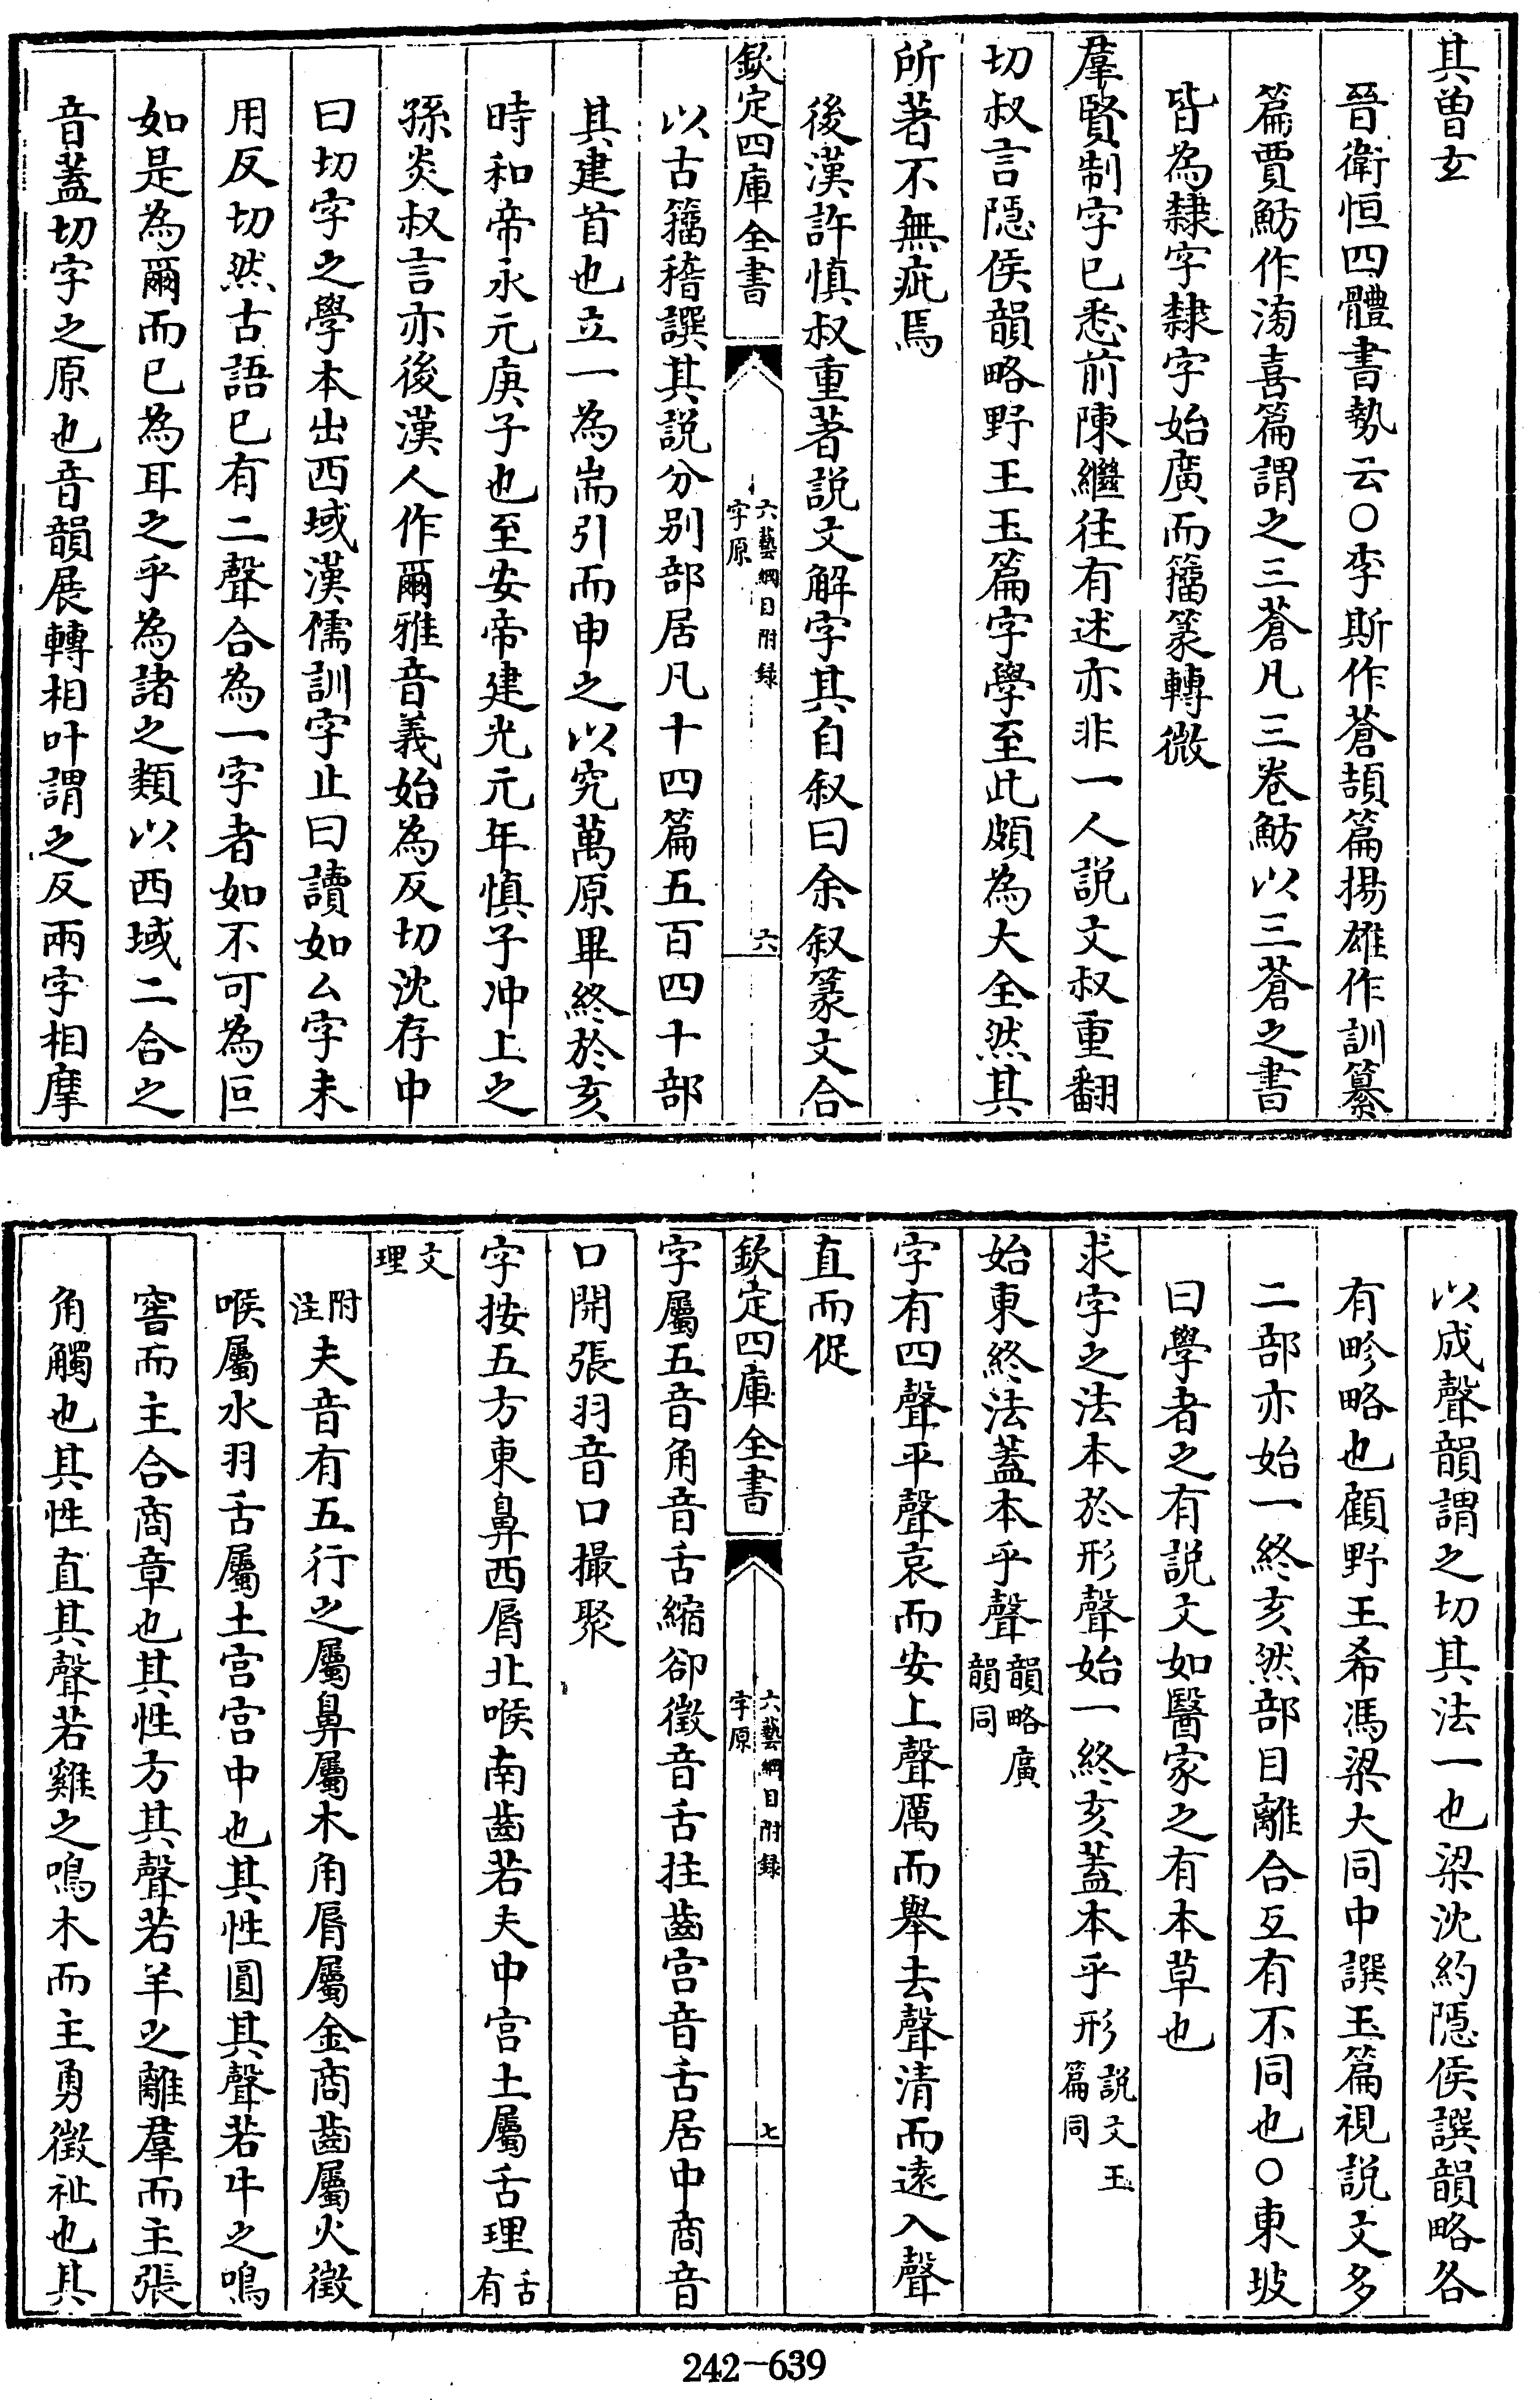 其曾玄
晉衛恒四體書勢云○李斯作蒼頡篇揚雄作訓纂
篇賈魴作滂喜篇謂之三蒼凡三卷魴以三蒼之書
皆為隸字隸字始廣而籀篆轉微
羣賢制字已悉前陳繼往有述亦非一人説文叔重翻
切叔言隠侯韻略野王玉篇字學至此頗為大全然其
所著不無疵焉
後漢許慎叔重著説文解字其自叙曰余叙篆文合
欽定四庫全書
六藝綱目附録
字原
六
以古籀稽譔其説分别部居凡十四篇五百四十部
其建首也立一為耑引而申之以究萬原畢終於亥
時和帝永元庚子也至安帝建光元年慎子冲上之
孫炎叔言亦後漢人作爾雅音義始為反切沈存中
曰切字之學本出西域漢儒訓字止曰讀如厶字未
用反切然古語已有二聲合為一字者如不可為叵
如是為爾而已為耳之乎為諸之類以西域二合之
音蓋切字之原也音韻展轉相叶謂之反兩字相摩
以成聲韻謂之切其法一也梁沈約隠侯譔韻略各
有畛略也顧野王希馮梁大同中譔玉篇視説文多
二部亦始一終亥然部目離合互有不同也○東坡
曰學者之有説文如醫家之有本草也
求字之法本於形聲始一終亥蓋本乎形説文玉篇同
始東終法蓋本乎聲韻略廣韻同
字有四聲平聲哀而安上聲厲而舉去聲清而遠入聲
直而促
欽定四庫全書
六藝綱目附録
字原
七
字屬五音角音舌縮卻徵音舌拄齒宫音舌居中商音
口開張羽音口撮聚
字按五方東鼻西脣北喉南齒若夫中宫土屬舌理舌有
文理
附注夫音有五行之屬鼻屬木角脣屬金商齒屬火徵
喉屬水羽舌屬土宫宫中也其性圓其聲若牛之鳴
窖而主合商章也其性方其聲若羊之離羣而主張
角觸也其性直其聲若雞之鳴木而主勇徵祉也其
242-639